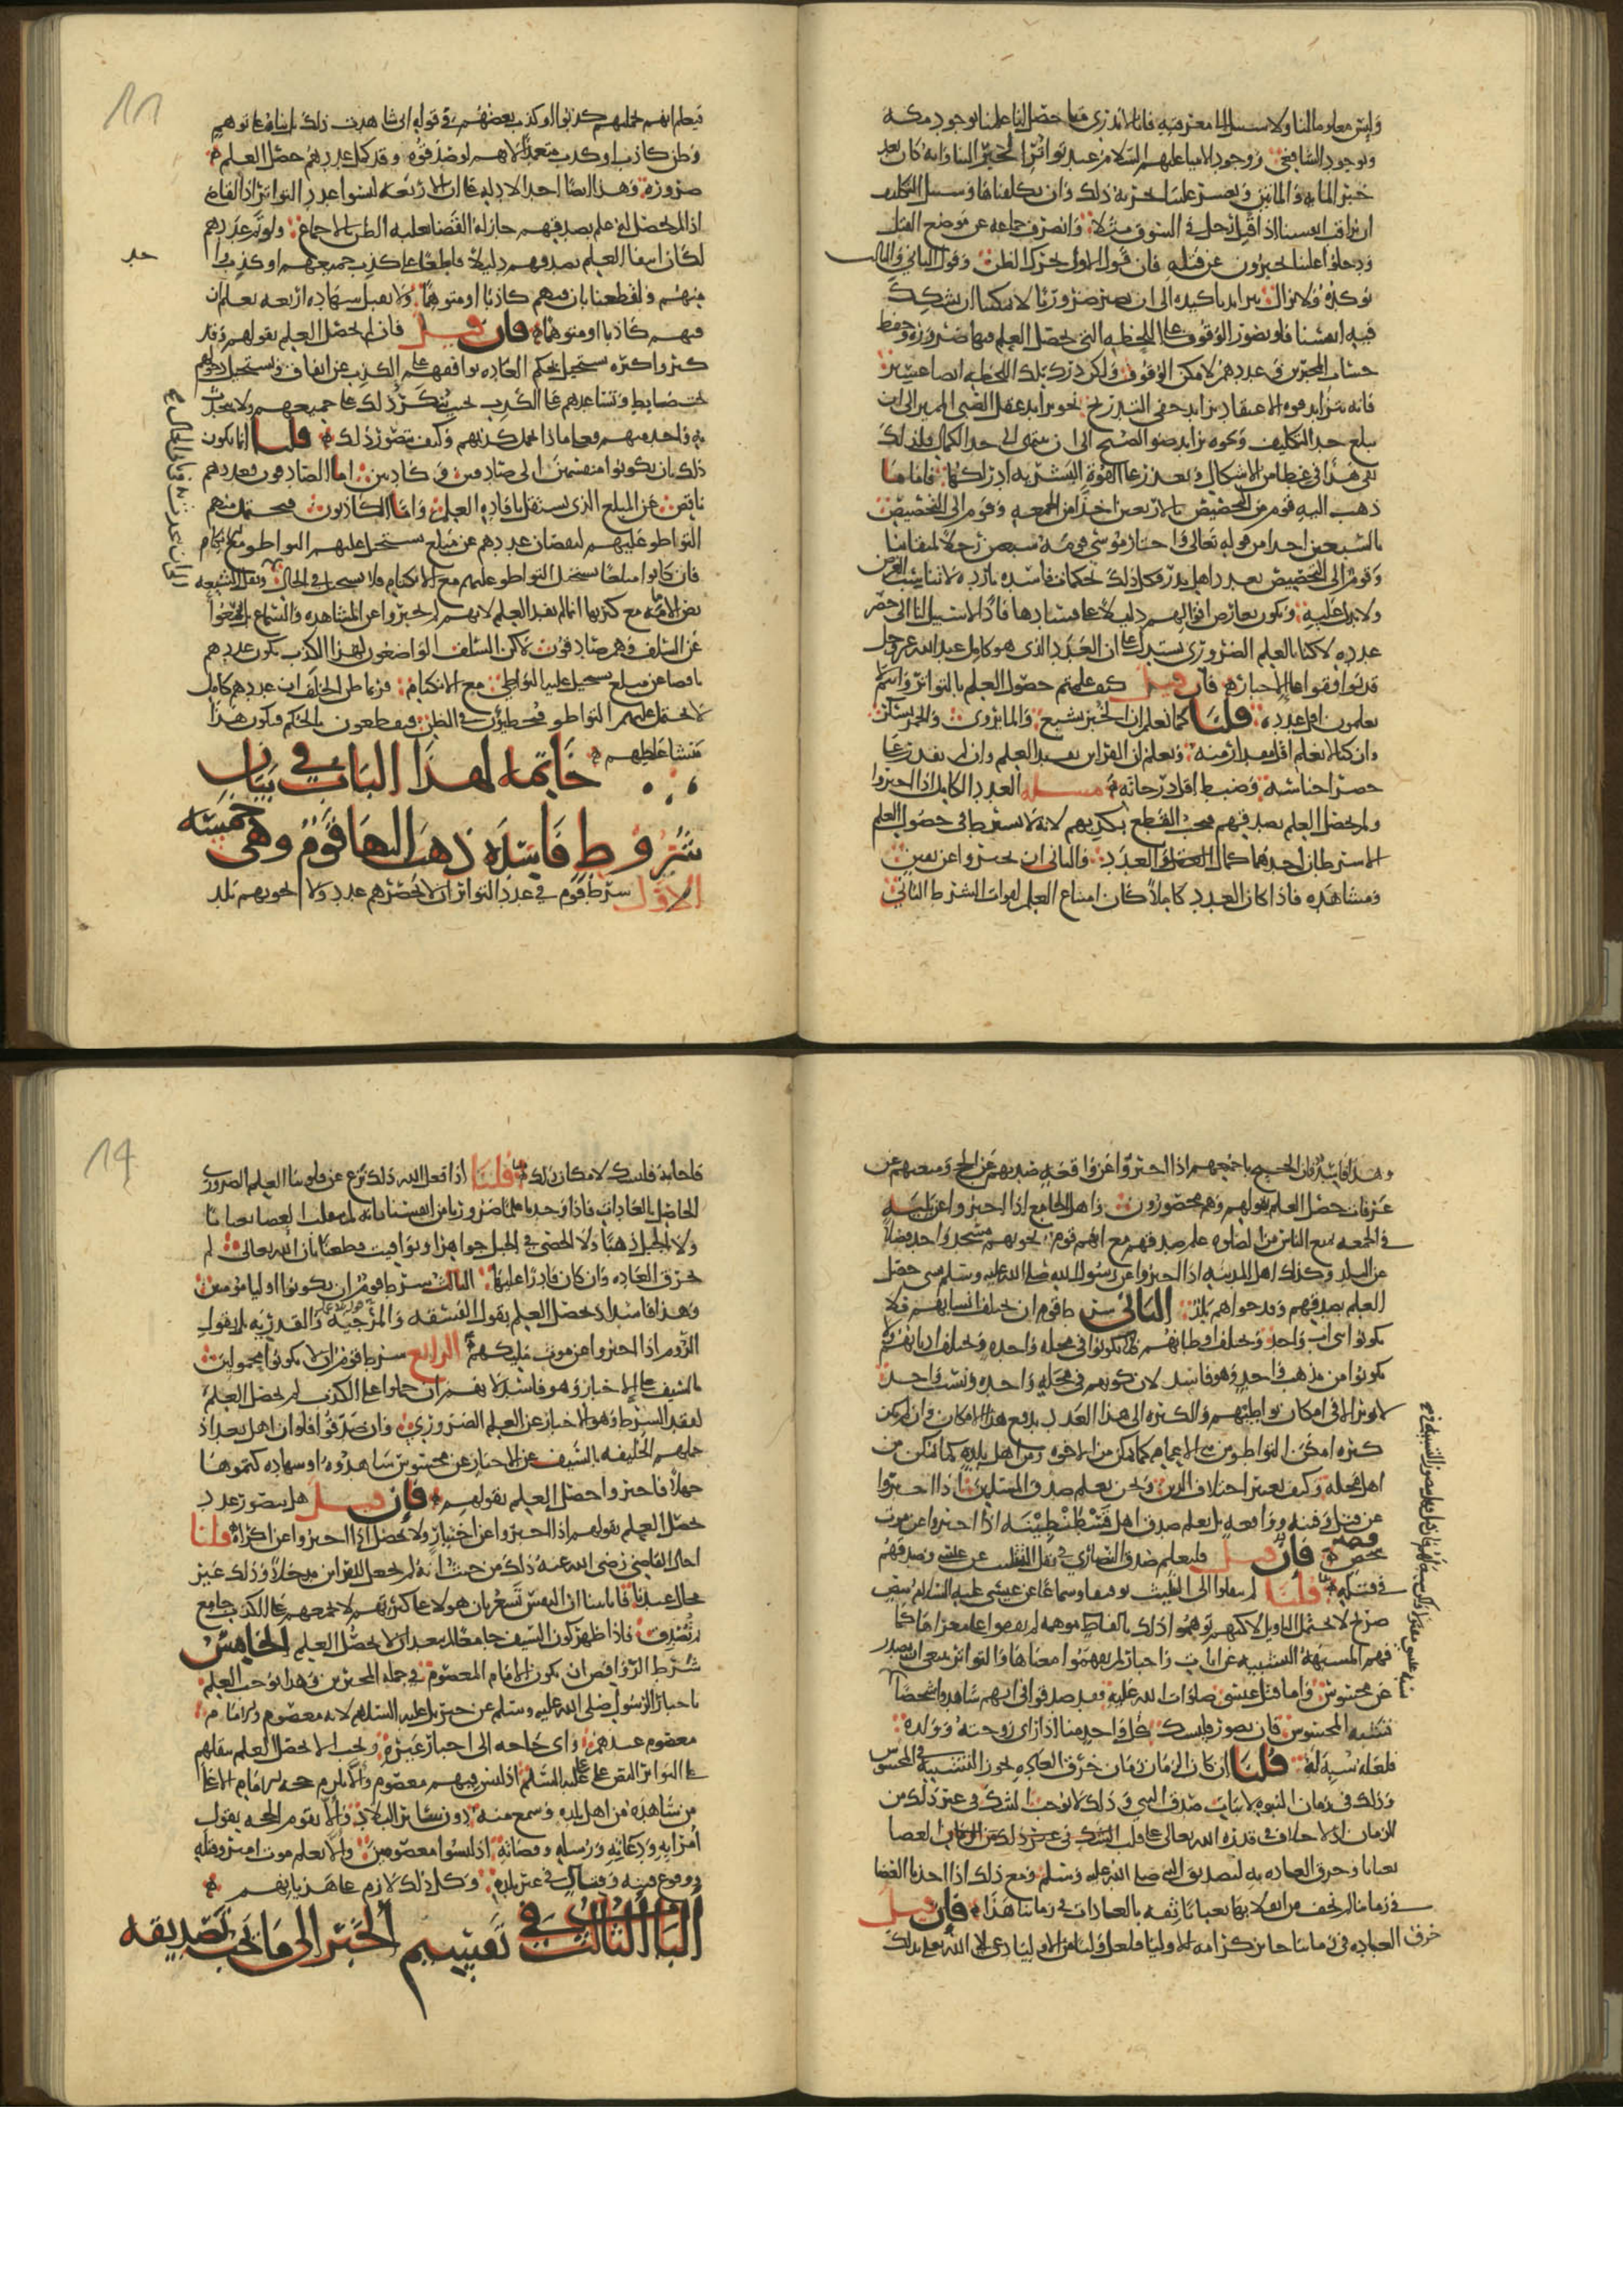 وليس معلوما لنا ولا سبيل الى معرفته فانا لا ندري متى حصل لنا علمنا بوجود مكه
وبوجود الشافعي ووجود الانبيا عليهم السلام عند تواتر الخبر الينا وانه كان بعد
خبر المايه والمايتين ويعسر علينا تجربة ذلك وان تكلفناها وسبيل التكلف
ان نراقب انفسنا اذا قتل رجل في السوق مثلا وانصرف جماعه عن موضع القتل
ودخلوا علينا يخبرون عن قتله فان قول الاول يحرك الظن وقول الثاني والثالث
يوكده ولا يزال يتزايد تاكيده الى ان يصير ضروريا لا يمكننا ان نشكك
فيه انفسنا فلو تصور الوقوف على اللحظه التي يحصل العلم فيها ضروره وحفظ
حساب المخبرين وعددهم لامكن الوقوف ولكن درك تلك اللحظه ايضا عسير
فانه تتزايد قوه الاعتقاد تزايد خفي التدريج نحو تزايد عقل الصبي المميز الى ان
يبلغ حد التكليف ونحو تزايد ضو الصبح الى ان ينتهي الى حد الكمال فلذلك
بقي هذا في غطا من الاشكال وتعذر على القوة البشريه ادراكها فاما ما
ذهب اليه قوم من التخصيص بالاربعين اخذا من الجمعه وقوم الى التخصيص
بالسبعين اخذا من قوله تعالى واختار موسى قومه سبعين رجلا لميقاتنا
وقوم الى التخصيص بعدد اهل بدر فكل ذلك تحكمات فاسده بارده لا تناسب الغرض
ولا تدل عليه ويكون تعارض اقوالهم دليلا على فسادها فاذا لا سبيل لنا الى حصر
عدده لاكنا بالعلم الضروري نستدل على ان العدد الذي هو كامل عند الله عز وجل
قد توافقوا على الاخبار فان قيل كيف علمتم حصول العلم بالتواتر وانتم لا
تعلمون اقل عدده قلنا كما نعلم ان الخبز يشبع والما يروي والخمر يسكر
وان كنا لا نعلم اقل مقدار منه ونعلم ان القراين تفيد العلم وان لم نقدر على
حصر اجناسها وضبط اقل درجاته مسله العدد الكامل اذا اخبروا
ولم يحصل العلم بصدقهم فيجب القطع بكذبهم لانه لا يشترط في حصول العلم
الا شرطان احدهما كمال العدد والثاني ان يخبروا عن يقين
ومشاهده فاذا كان العدد كاملا كان امتناع العلم لفوات الشرط الثاني
فيعلم انهم بجملتهم كذبوا او كذب بعضهم في قوله اني شاهدت ذلك بل بناه على توهم
وظن كاذب او كذب متعمدا لانهم لو صدقوه وقد كمل عددهم حصل العلم
ضرورة وهذا ايضا احد الادله على ان الاربعه ليسوا عدد التواتر اذ القاضي
اذا لم يحصل له علم بصدقهم جاز له القضا بغلبه الظن بالاجماع ولو تم عددهم
لكان انتفا العلم بصدقهم دليلا قاطعا على كذب جميعهم او كذب واحد
منهم ولقطعنا بان فيهم كاذبا او متوهما ولا يقبل شهاده اربعه يعلم ان
فيهم كاذبا او متوهما فان قيل فان لم يحصل العلم بقولهم وقد
كثروا كثره يستحيل بحكم العاده توافقهم على الكذب عن اتفاق ويستحيل دخولهم
تحت ضابط وتساعدهم على الكذب بحيث ينكتم ذلك على جميعهم ولا يتحدث
به واحد منهم فعلى ماذا يحمل كذبهم وكيف يتصور ذلك قلنا انما يكون
ذلك بان يكونوا منقسمين الى صادقين وكاذبين اما الصادقون فعددهم
ناقص عن المبلغ الذي يستقل بافاده العلم واما الكاذبون فيحتمل منهم
التواطو عليهم لنقصان عددهم عن مبلغ يستحيل عليهم التواطو مع الانكتام
فان كانوا مبلغا يستحيل التواطو عليهم مع الانكتام فلا يستحيل في الحال ونقل الشيعه
نص الامامه مع كثرتها انما لم يفد العلم لانهم لم يخبروا عن المشاهده والسماع بل سمعوا
عن السلف وهم صادقون لاكن السلف الواضعون لهذا الكذب يكون عددهم
ناقصا عن مبلغ يستحيل عليه التواطي مع الانكتام فربما ظن الخلف ان عددهم كامل
لا يحتمل عليهم التواطو فيخطون في الظن فيقطعون بالحكم فيكون هذا
منشا غلطهم خاتمة لهذا الباب في بيان
شروط فاسده ذهب اليها قوم وهي خمسه
الاول شرط قوم في عدد التواتر ان لا يحصرهم عدد ولا يحويهم بلد
وهذا فاسد فان الحجيج باجمعهم اذا اخبروا عن واقعه صدتهم عن الحج ومنعتهم من
عرفات حصل العلم بقولهم وهم محصورون واهل الجامع اذا اخبروا عن نايبه
في الجمعه منع الناس من الصلوه علم صدقهم مع انهم قوم يحويهم مسجد واحد فضلا
عن البلد وكذلك اهل المدينه اذا اخبروا عن رسول الله صلى الله عليه وسلم بشي حصل
العلم بصدقهم وقد حواهم بلد الثاني شرط قوم ان تختلف انسابهم فلا
يكونوا بني اب واحد وتختلف اوطانهم فلا يكونوا في محله واحده وتختلف اديانهم فلا
يكونوا من مذهب واحد وهو فاسد لان كونهم في محله واحده ونسب واحد
لا يوثر الا في امكان تواطيهم والكثره الى هذا العدد تدفع هذا الامكان وان لم تكن
كثره امكن التواطو من بني الاعمام كما يمكن من الاخوه ومن اهل بلده كما يمكن من
اهل محله وكيف يعتبر اختلاف الدين ونحن نعلم صدق المسلمين اذا اخبروا
عن قتل وفتنه وواقعه بل نعلم صدق اهل قسطنطينيه اذا اخبروا عن موت
قيصر فان قيل فلنعلم صدق النصارى في نقل التثليث عن عيسى وصدقهم
في صلبه قلنا لم ينقلوا التثليث توقيفا وسماعا عن عيسى عليه السلام بنص
صريح لا يحتمل التاويل لاكنهم توهموا ذلك بالفاظ موهمه لم يقفوا على مغزاها كما
فهم المشبهه التشبيه عن ايات واخبار لم يفهموا معناها والتواتر ينبغي ان يصدر
عن محسوس واما قتل عيسى صلوات الله عليه فقد صدقوا في انهم شاهدوا شخصا
فلعله شبه له قلنا ان كان الزمان زمان خرق العاده يجوز التشبيه في المحسوس
وذلك في زمان النبوه لاثبات صدق النبي وذلك لا يوجب الشك في غير ذلك من
الزمان اذ لا خلاف في قدره الله تعالى على قلب العصا
ثعبانا وخرق العاده به لتصديق النبي صلى الله عليه وسلم ومع ذلك اذا اخذنا العصا
في زماننا لم نخف من انقلابها ثعبانا ثقه بالعادات في زماننا هذا فان قيل
خرق العاده في زماننا جايز كرامه للاوليا فلعل وليا من الاوليا دعا الله بذلك
فاجابه فلنشك لامكان ذلك قلنا اذا فعل الله ذلك نزع عن قلوبنا العلم الضروري
الحاصل بالعادات فاذا وجدنا علما ضروريا من انفسنا بانه لم تنقلب العصا ثعبانا
ولا الجبل ذهبا ولا الحصى في الجبل جواهر ويواقيت قطعنا بان الله تعالى لم
يخرق العاده وان كان قادرا عليها الثالث شرط قوم ان يكونوا اوليا مومنين
وهذا فاسد اذ يحصل العلم بقول الفسقه والمرجيه والقدريه بل بقول
الروم اذا اخبروا عن موت ملكهم الرابع شرط قوم ان لا يكونوا محمولين
بالسيف على الاخبار وهو فاسد لانهم ان حملوا على الكذب لم يحصل العلم
لفقد الشرط وهو الاخبار عن العلم الضروري وان صدقوا فلو ان اهل بغداد
حملهم الخليفه بالسيف على الاخبار عن محسوس شاهدوه او شهاده كتموها
فاخبروا حصل العلم بقولهم فان قيل هل يتصور عدد
يحصل العلم بقولهم اذا اخبروا عن اختيار ولا يحصل اذا اخبروا عن اكراه قلنا
احال القاضي رضي الله عنه ذلك من حيث انه لم يجعل للقراين مدخلا وذلك غير
محال عندنا فانا بينا ان النفس تشعر بان هولا على كثرتهم لا يجمعهم على الكذب جامع
ثم تصدق فاذا ظهر كون السيف جامعا لم يبعد ان لا يحصل العلم الخامس
شرط الروافض ان يكون الامام المعصوم في جمله المخبرين وهذا يوجب العلم
باخبار الرسول صلى الله عليه وسلم عن جبريل عليه السلام لانه معصوم
معصوم عندهم واي حاجه الى اخبار غيره ويجب الا يحصل العلم بنقلهم
على التواتر النص على علي عليه السلام اذ ليس فيهم معصوم والا يلزم حجه الامام الا على
من شاهده من اهل بلده وسمع منه دون ساير البلاد والا تقوم الحجه بقول
امرايه ودعاته ورسله وقضاته اذ ليسوا معصومين والا يعلم موت امير وقتله
ووقوع فتنه وقتال في غير بلده وكل ذلك لازم على هذيانهم
الباب الثالث في تقسيم الخبر الى ما يجب تصديقه